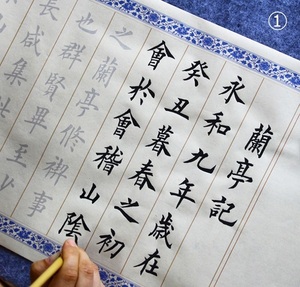 ①
蘭亭記
永和九年歲在
癸丑暮春之初
會於會稽山陰
之蘭亭修禊
也群賢畢
長咸集
至
事